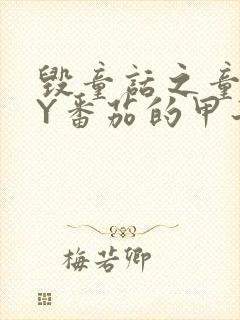 毁童话之童
Y番茄的甲
梅若卿